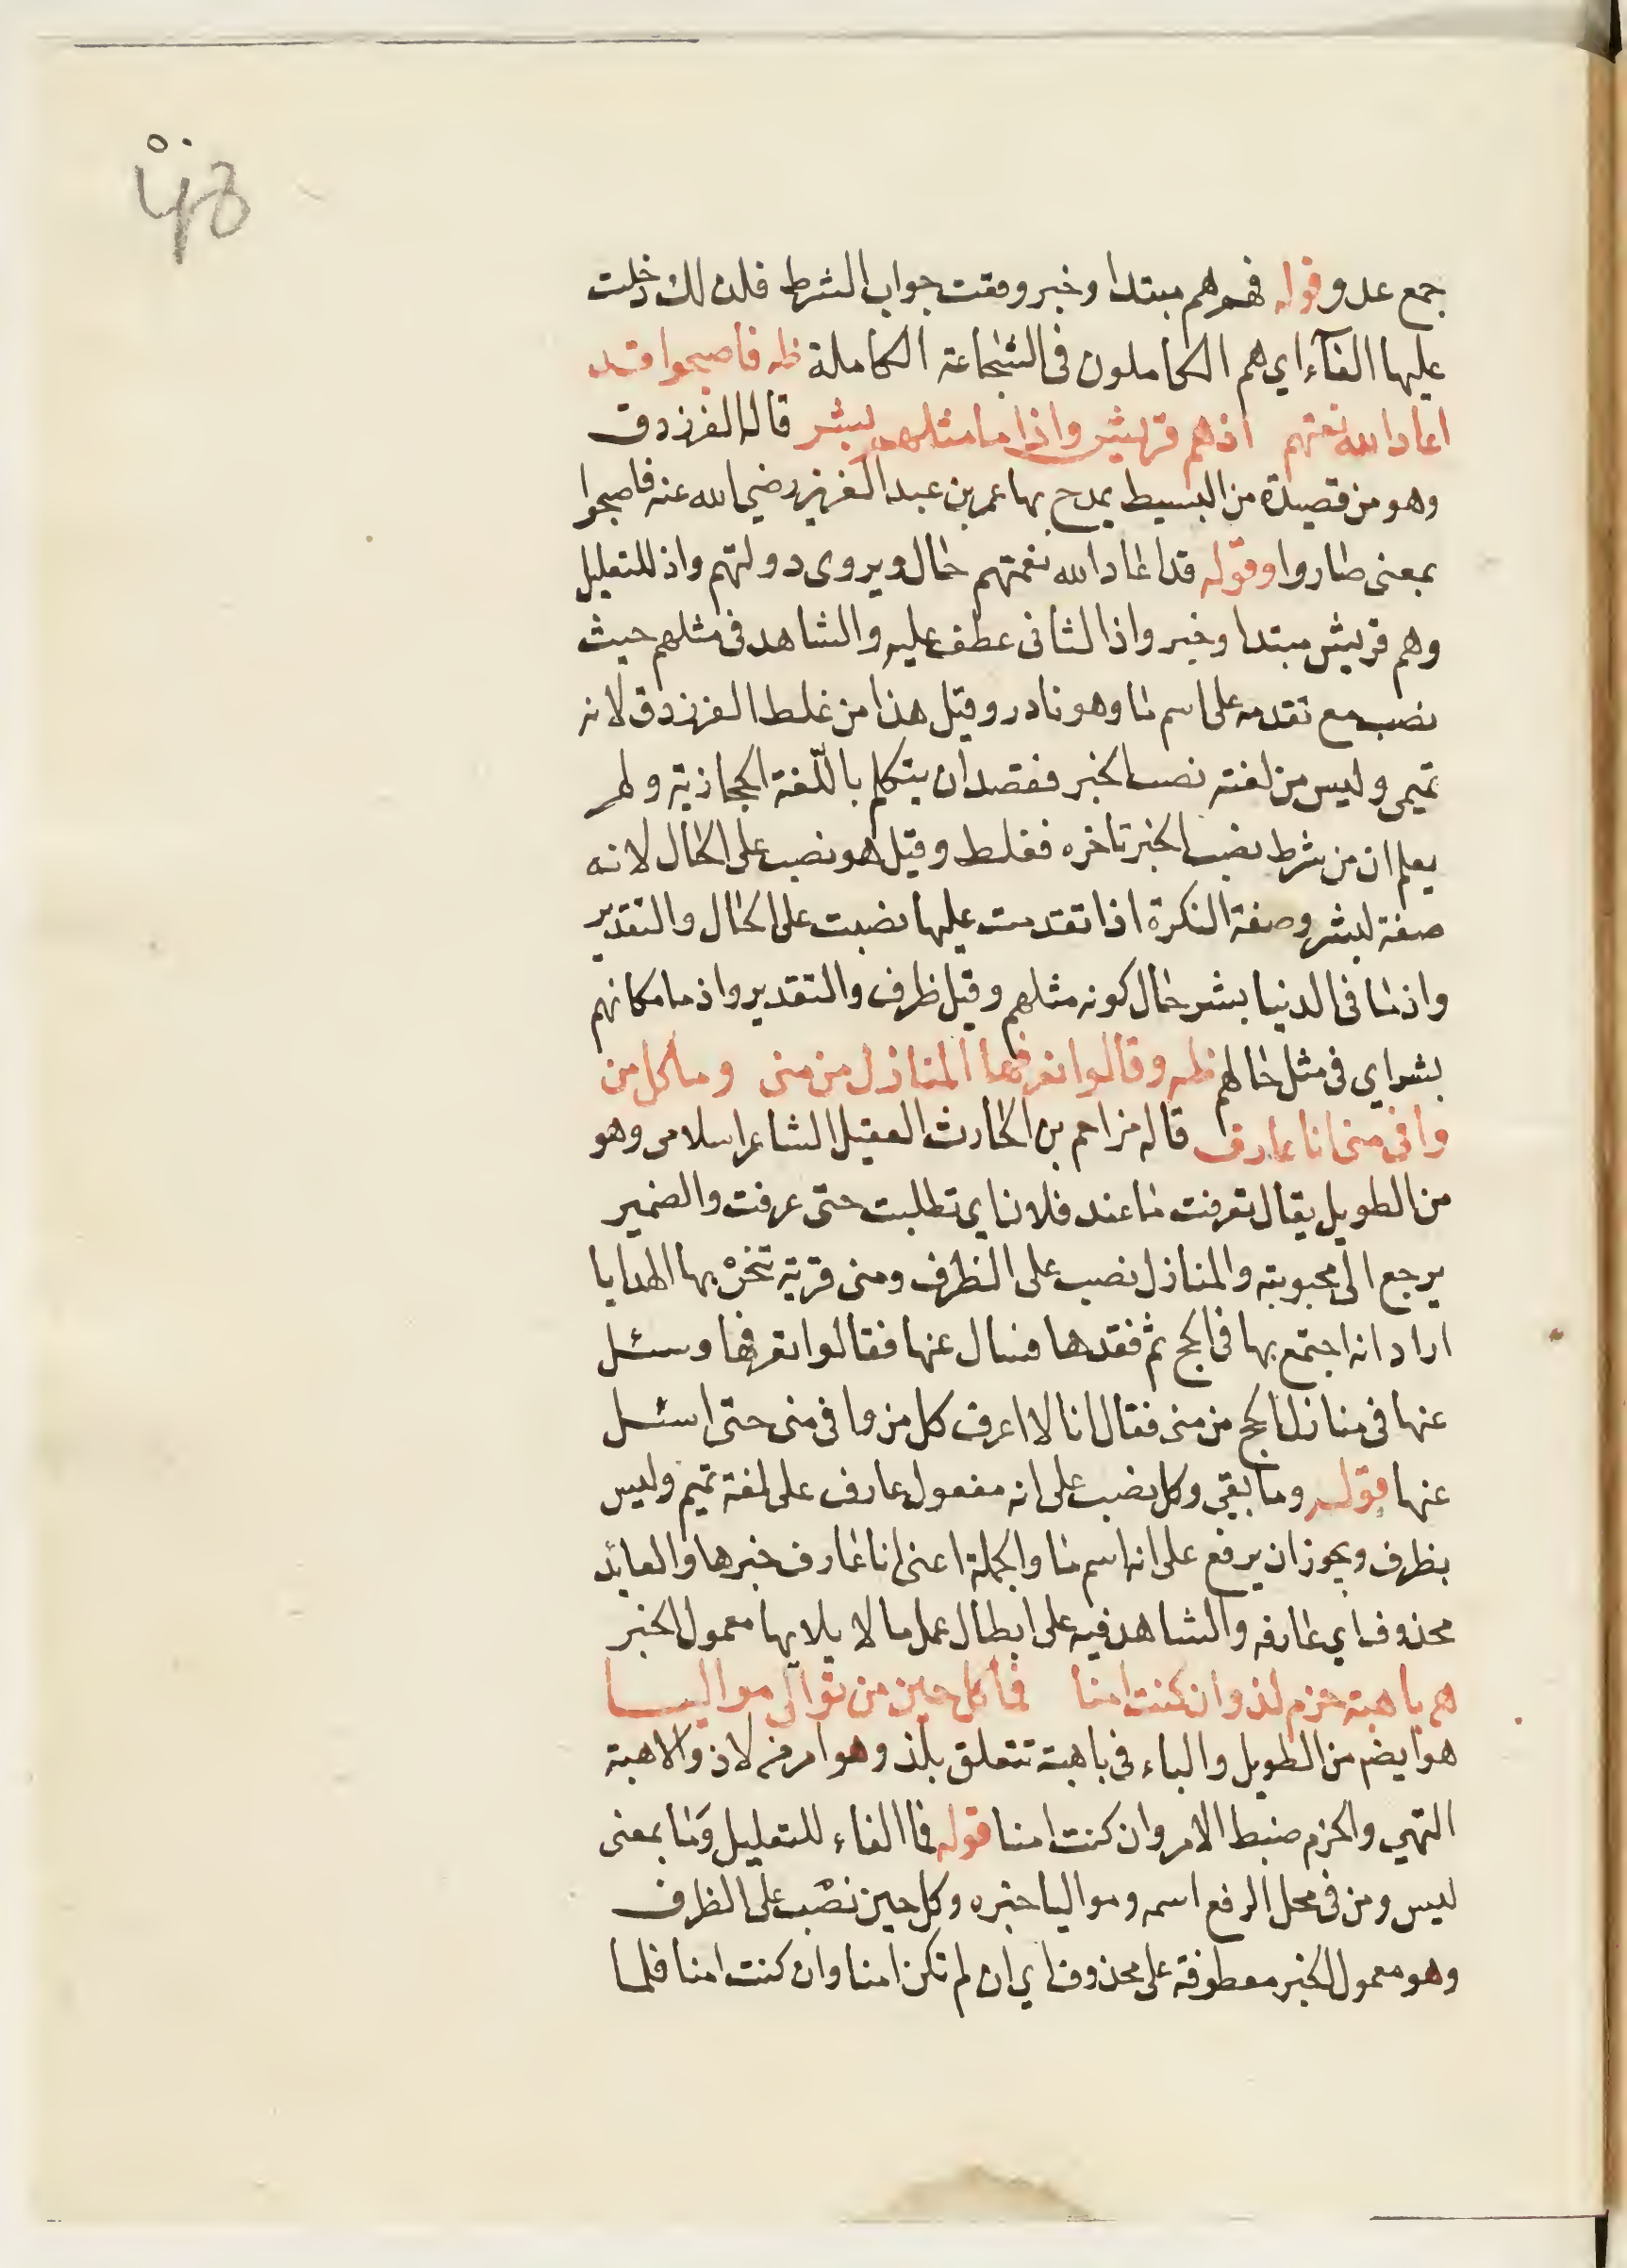 جمع عدو قوله فهم هم مبتدا وخبر وقعت جواب الشرط فلذلك دخلت
عليها الفآء اي هم الكاملون فى الشجاعة الكاملة ظه فاصبحوا قد
اعاد الله نعمتهم اذ هم قريش واذا ما مثلهم بشر قاله الفرزدق
وهو من قصيدة من البسيط يمدح بها عمر بن عبد العزيز رضي الله عنه فاصبحوا
بمعنى صاروا وقوله قد اعاد الله نعمتهم حال ويروى دولتهم واذ للتعليل
وهم قريش مبتدا وخبر واذ الثانى عطف عليه والشاهد فى مثلهم حيث
نصب مع تقدمه على اسم ما وهو نادر وقيل هذا من غلط الفرزدق لانه
تميمى وليس من لغته نصب الخبر فقصد ان يتكلم باللّغة الحجازية ولم
يعلم ان من شرط نصب الخبر تاخره فغلط وقيل هو نصب على الحال لانه
صفة لبشر وصفة النكرة اذا تقدمت عليها نصبت على الحال والتقدير
واذ ما فى الدنيا بشر حال كونه مثلهم وقيل ظرف والتقدير واذ ما مكانهم
بشر اي فى مثل حالهم ظه وقالوا تعرفها المنازل من منى وما كل من
وافى منى انا عارف قاله مزاحم بن الحارث العقيلى الشاعر اسلامى وهو
من الطويل يقال تعرفت ما عند فلان اي تطلبت حتى عرفت والضمير
يرجع الى محبوبته والمنازل نصب على الظرف ومنى قرية تنحر بها الهدايا
اراد انه اجتمع بها فى الحج ثم فقدها فسال عنها فقالوا تعرفها وسئل
عنها فى منازل الحج من منى فقال انا لا اعرف كل من وافى منى حتى اسئل
عنها قوله وما بقي وكل نصب على انه مفعول عارف على لغة تميم وليس
بظرف ويجوز ان يرفع على انه اسم ما والجملة اعنى انا عارف خبرها والعائد
محذوف اي عارفه والشاهد فيه على ابطال عمل ما لا يلايها معمول الخبر
هم باهبة حزم لذ وان كنت امنا فما كل حين من توالى مواليا
هو ايضم من الطويل والباء فى باهبة تتعلق بلذ وهو امر من لاذ والاهبة
التهي والحزم ضبط الامر وان كنت امنا قوله فما الفاء للتعليل وَما بمعنى
ليس ومن فى محل الرفع اسمه ومواليا خبره وكل حين نصب على الظرف
وهو معمول الخبر معطوفة على محذوف اي ان لم تكن امنا وان كنت امنا فلما